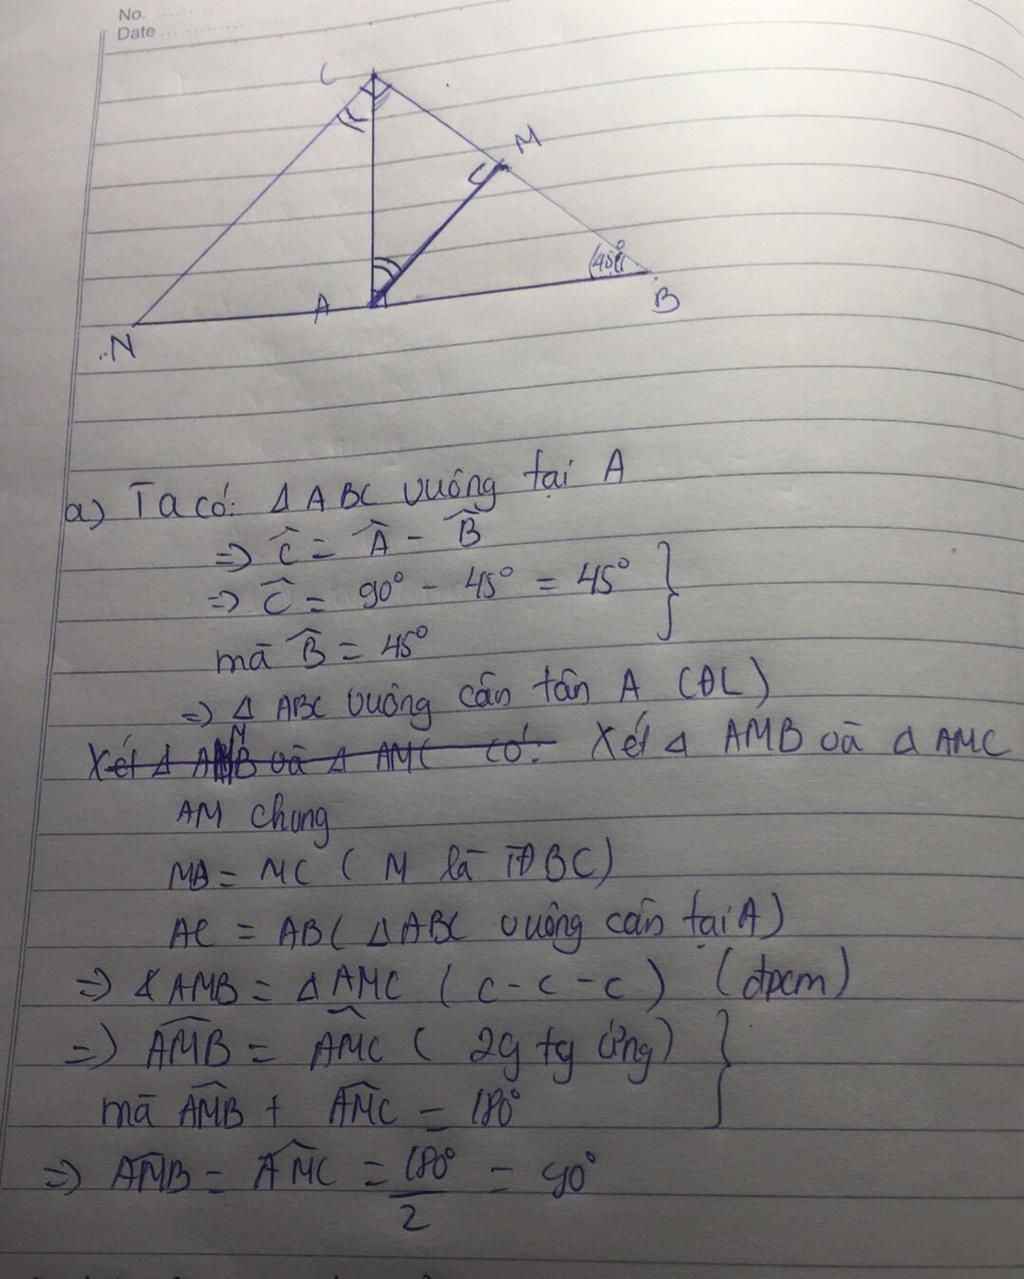 No.
Date
C
M
45°
A
B
N
a) Ta có: Δ ABC vuông tại A
=> Ĉ = Â - B̂
=> Ĉ = 90° - 45° = 45°
mà B̂ = 45°
=> Δ ABC vuông cân tân A (ĐL)
Xét Δ AMB và Δ AMC có: Xét Δ AMB và Δ AMC
AM chung
MB = MC ( M là TĐ BC)
AC = AB ( Δ ABC vuông cân tại A)
=> Δ AMB = Δ AMC ( c - c - c ) (đpcm)
=> AMB̂ = AMĈ ( 2g tg ứng)
mà AMB̂ + AMĈ = 180°
=> AMB̂ = AMĈ = 180°/2 = 90°